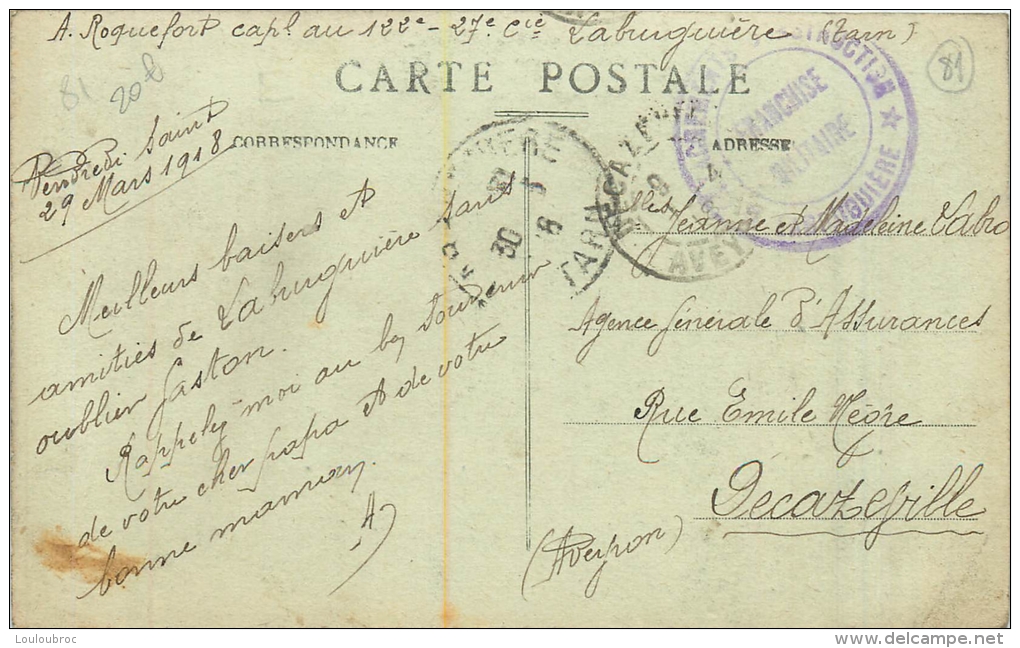 A. Roquefort capl au 122e - 27e Cie Labruguière (Tarn)
81
20f
81
CARTE POSTALE
CORRESPONDANCE
ADRESSE
Vendredi Saint
29 Mars 1918
Meilleurs baisers et
amitiés de Labruguière sans
oublier Gaston.
Rappelez moi au bon souvenir
de votre cher papa et de votre
bonne maman.
A
30
TARN
DECAZEVI
AVEY
INSTRUCTION
FRANCHISE
MILITAIRE
Mlles Jeanne et Madeleine Vabre
Agence Générale d'Assurances
Rue Emile Nègre
Decazeville
(Aveyron)
Louloubroc
www.delcampe.net